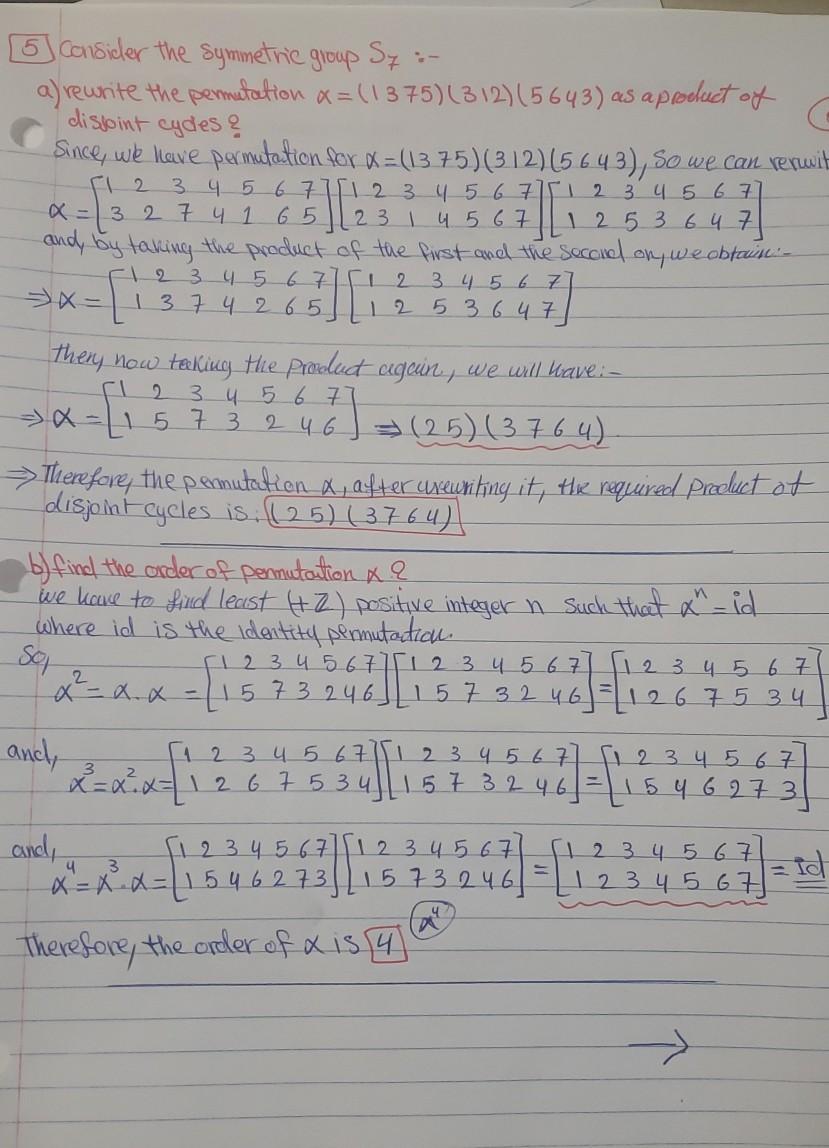 5 Consider the symmetric group S₇ :-
a) rewrite the permutation α = (1375)(312)(5643) as a product of
disjoint cycles?
Since, we have permutation for α = (1375)(312)(5643), so we can
α = [1 2 3 4 5 6 7 / 3 2 7 4 1 6 5] [1 2 3 4 5 6 7 / 2 3 1 4 5 6 7] [1 2 3 4 5 6 7 / 1 2 5 3 6 4 7]
and, by taking the product of the first and the second on, we obtain:-
⇒ α = [1 2 3 4 5 6 7 / 1 3 7 4 2 6 5] [1 2 3 4 5 6 7 / 1 2 5 3 6 4 7]
then, now taking the product again, we will have:-
⇒ α = [1 2 3 4 5 6 7 / 1 5 7 3 2 4 6] ⇒ (25)(3764)
⇒ Therefore, the permutation α, after rewriting it, the required product of
disjoint cycles is: (25)(3764)
b) find the order of permutation α?
we have to find least (+Z) positive integer n such that αⁿ = id
where id is the identity permutation.
So, α² = α.α = [1 2 3 4 5 6 7 / 1 5 7 3 2 4 6] [1 2 3 4 5 6 7 / 1 5 7 3 2 4 6] = [1 2 3 4 5 6 7 / 1 2 6 7 5 3 4]
and, α³ = α².α = [1 2 3 4 5 6 7 / 1 2 6 7 5 3 4] [1 2 3 4 5 6 7 / 1 5 7 3 2 4 6] = [1 2 3 4 5 6 7 / 1 5 4 6 2 7 3]
and, α⁴ = α³.α = [1 2 3 4 5 6 7 / 1 5 4 6 2 7 3] [1 2 3 4 5 6 7 / 1 5 7 3 2 4 6] = [1 2 3 4 5 6 7 / 1 2 3 4 5 6 7] = Id
Therefore, the order of α is 4 α⁴